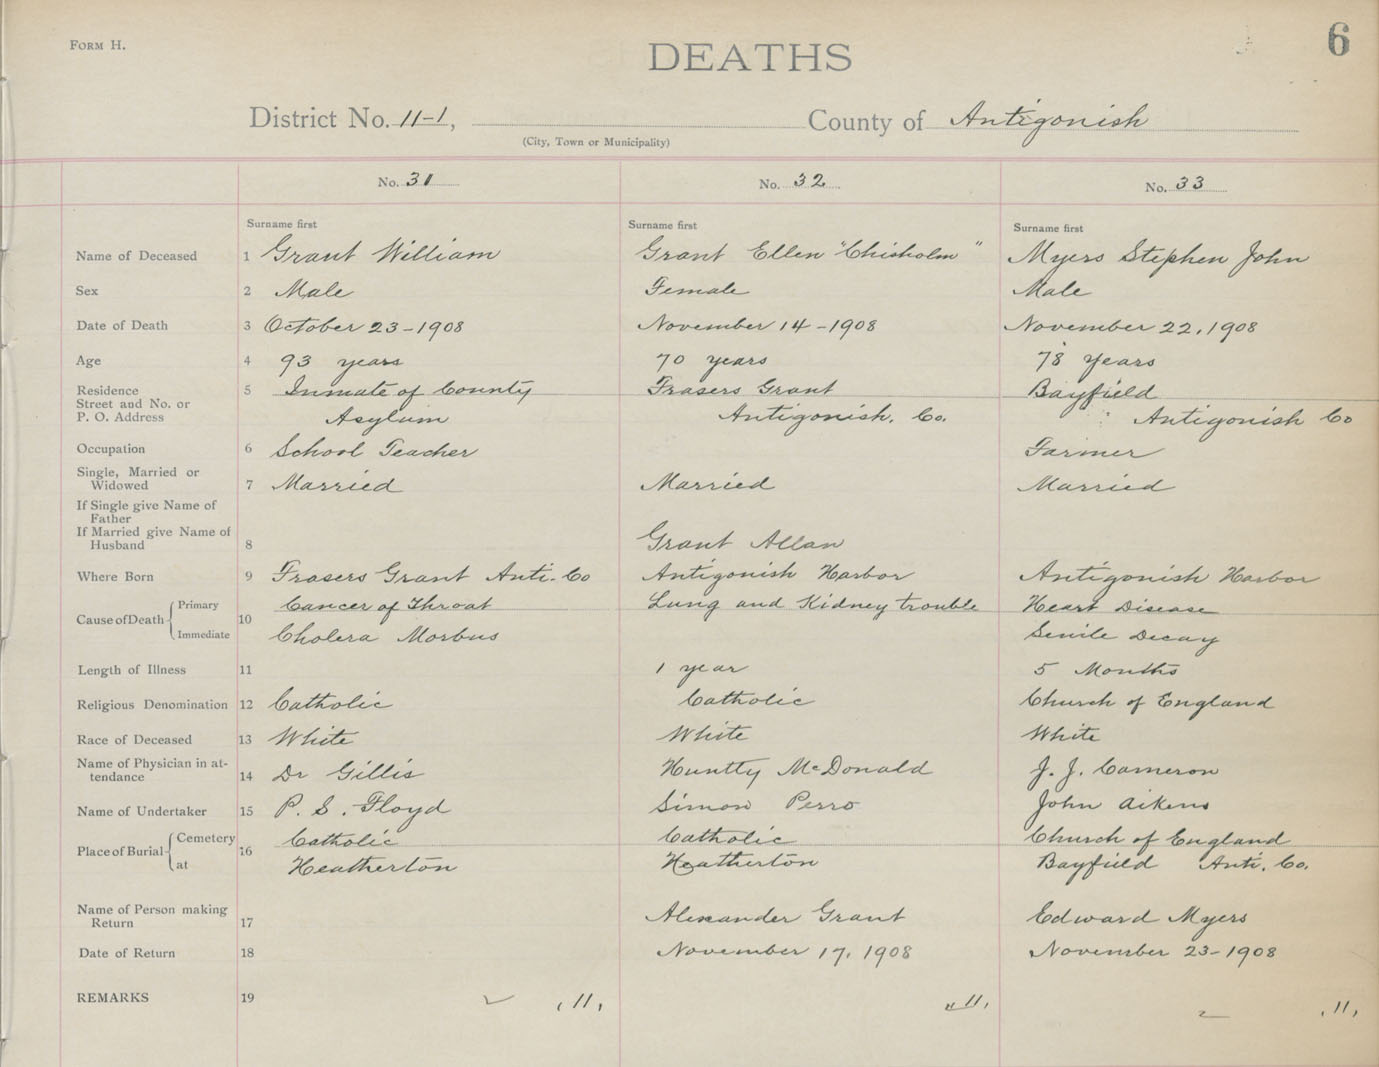 Form H.
6
DEATHS
District No. 11-1, County of Antigonish
(City, Town or Municipality)
No. 31 No. 32 No. 33
Surname first Surname first Surname first
Name of Deceased 1 Grant William Grant Ellen "Chisholm" Myers Stephen John
Sex 2 Male Female Male
Date of Death 3 October 23-1908 November 14-1908 November 22, 1908
Age 4 93 years 70 years 78 years
Residence 5 Inmate of County Frasers Grant Bayfield
Street and No. or
P. O. Address Asylum Antigonish. Co. Antigonish Co
Occupation 6 School Teacher Farmer
Single, Married or
Widowed 7 Married Married Married
If Single give Name of
Father
If Married give Name of
Husband 8 Grant Allan
Where Born 9 Frasers Grant Anti-Co Antigonish Harbor Antigonish Harbor
Cause of Death 10 Primary Cancer of Throat Lung and Kidney trouble Heart Disease
Immediate Cholera Morbus Senile Decay
Length of Illness 11 1 year 5 Months
Religious Denomination 12 Catholic Catholic Church of England
Race of Deceased 13 White White White
Name of Physician in at-
tendance 14 Dr Gillis Huntly McDonald J. J. Cameron
Name of Undertaker 15 P. S. Floyd Simon Perro John Aikens
Place of Burial 16 Cemetery Catholic Catholic Church of England
at Heatherton Heatherton Bayfield Anti. Co.
Name of Person making
Return 17 Alexander Grant Edward Myers
Date of Return 18 November 17, 1908 November 23-1908
REMARKS 19 11, 11, 11,